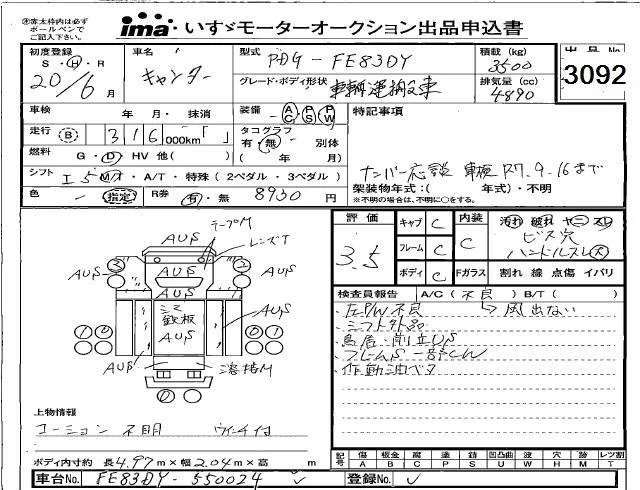 ※赤太枠内は必ずボールペンでご記入下さい。
ima いすゞモーターオークション出品申込書
初度登録 S・H・R 20/6月
車名 キャンター
型式 PDG-FE83DY
グレード・ボディ形状 車輌運搬車
積載(kg) 3500
排気量(cc) 4890
出品No 3092
車検 年・月・抹消
装備 AC PS PW
特記事項
走行 B 316,000km「 」
タコグラフ 有・無 別体 ( 年 月)
燃料 G・D・HV 他( )
ナンバー応談 車検R7.9.16まで
シフト I5 MT・A/T・特殊(2ペダル・3ペダル)
架装物年式:( 年式)・不明
※不明の場合は、不明に○をする。
色 - 指定 R券 有・無 8930円
評価 3.5
キャブ C
フレーム C
ボディ C
内装 C
Fガラス
汚れ 破れ ヤニ スレ
ビス穴
ハンドルスレ大
割れ 線 点傷 イバリ
テープM
レンズT
AUS
シマ鉄板
溶接M
検査員報告 A/C(不良) B/T( )
→風出ない
・左P/W不良
・シフト外品
・鳥居・前立US
・フレームS一部CW
・作動油ベタ
上物情報
コーション不明 ウィンチ付
ボディ内寸約 長4.97m×幅2.04m×高 m
記号 傷A 板金B 腐C 塗P 錆S 凹凸曲U 波W 穴H ミメM レツ割T
車台No. FE83DY-550024
登録No.